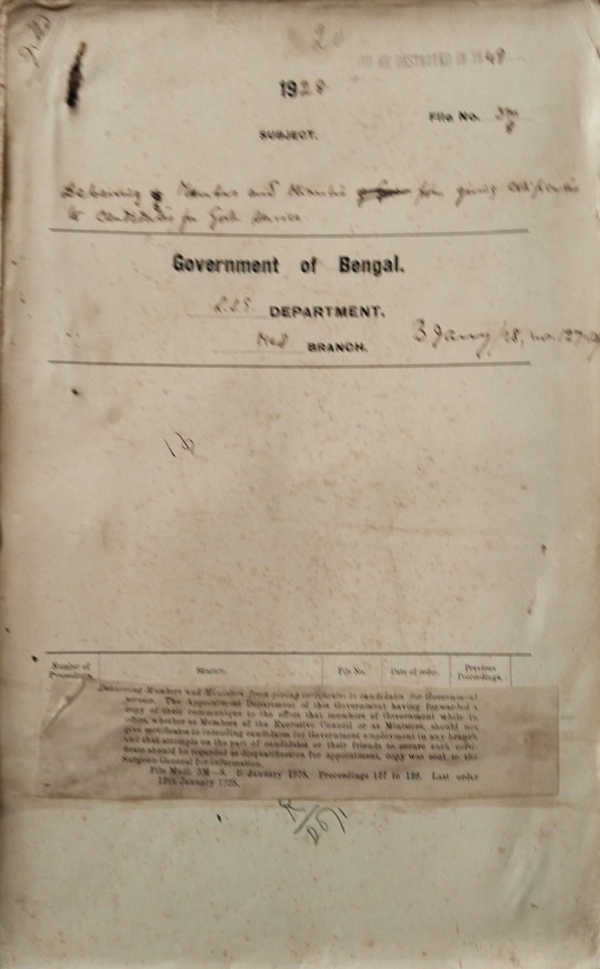 20
TO BE DESTROYED IN 1949
1928
File No. 3M/8
SUBJECT.
Debarring Members and Ministers from giving certificates
to candidates for Govt. service
Government of Bengal.
L.S.G. DEPARTMENT.
Med BRANCH.
B Jany/28, nos. 127-
Number of Proceedings.
File No.
Date of order.
Previous Proceedings.
Debarring Members and Ministers from giving certificates to candidates for Government
service. The Appointment Department of this Government having forwarded a
copy of their communique to the effect that members of Government while in
office, whether as Members of the Executive Council or as Ministers, should not
give certificates to intending candidates for Government employment in any branch
and that attempts on the part of candidates or their friends to secure such certi-
ficate should be regarded as disqualification for appointment, copy was sent to the
Surgeon-General for information.
File Medl. 3M—8. B January 1928. Proceedings 127 to 129. Last order
12th January 1928.